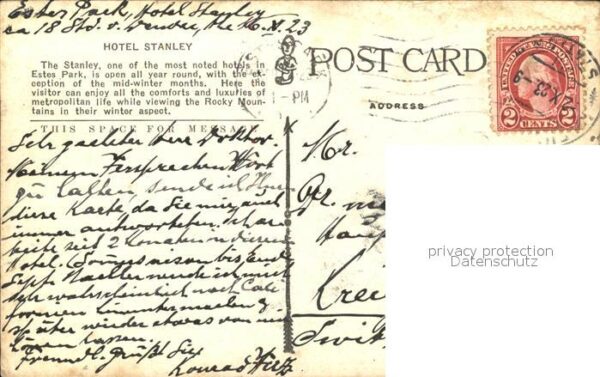 Estes Park, Hotel Stanley
ca 18 Std. v. Denver, the 16. X. 23
HOTEL STANLEY
The Stanley, one of the most noted hotels in
Estes Park, is open all year round, with the ex-
ception of the mid-winter months. Here the
visitor can enjoy all the comforts and luxuries of
metropolitan life while viewing the Rocky Moun-
tains in their winter aspect.
THIS SPACE FOR MESSAGE
Sehr geehrter Herr Doktor.
Meinem Versprechen Wort
zu halten, sende ich Ihnen
diese Karte, da Sie mir auch
immer antworteten. Ich ar-
beite seit 2 Monaten in diesem
Hotel. Sommersaison bis Ende
Sept. Nachher werde ich mich
sehr wahrscheinlich nach Cali-
fornien
später wieder etwas von mir
hören lassen.
Freundl. Grüßt Sie
Konrad
POST CARD
ADDRESS
PM
UNITED STATES POSTAGE
2 CENTS 2
Mr.
Dr.
Swit
privacy protection
Datenschutz